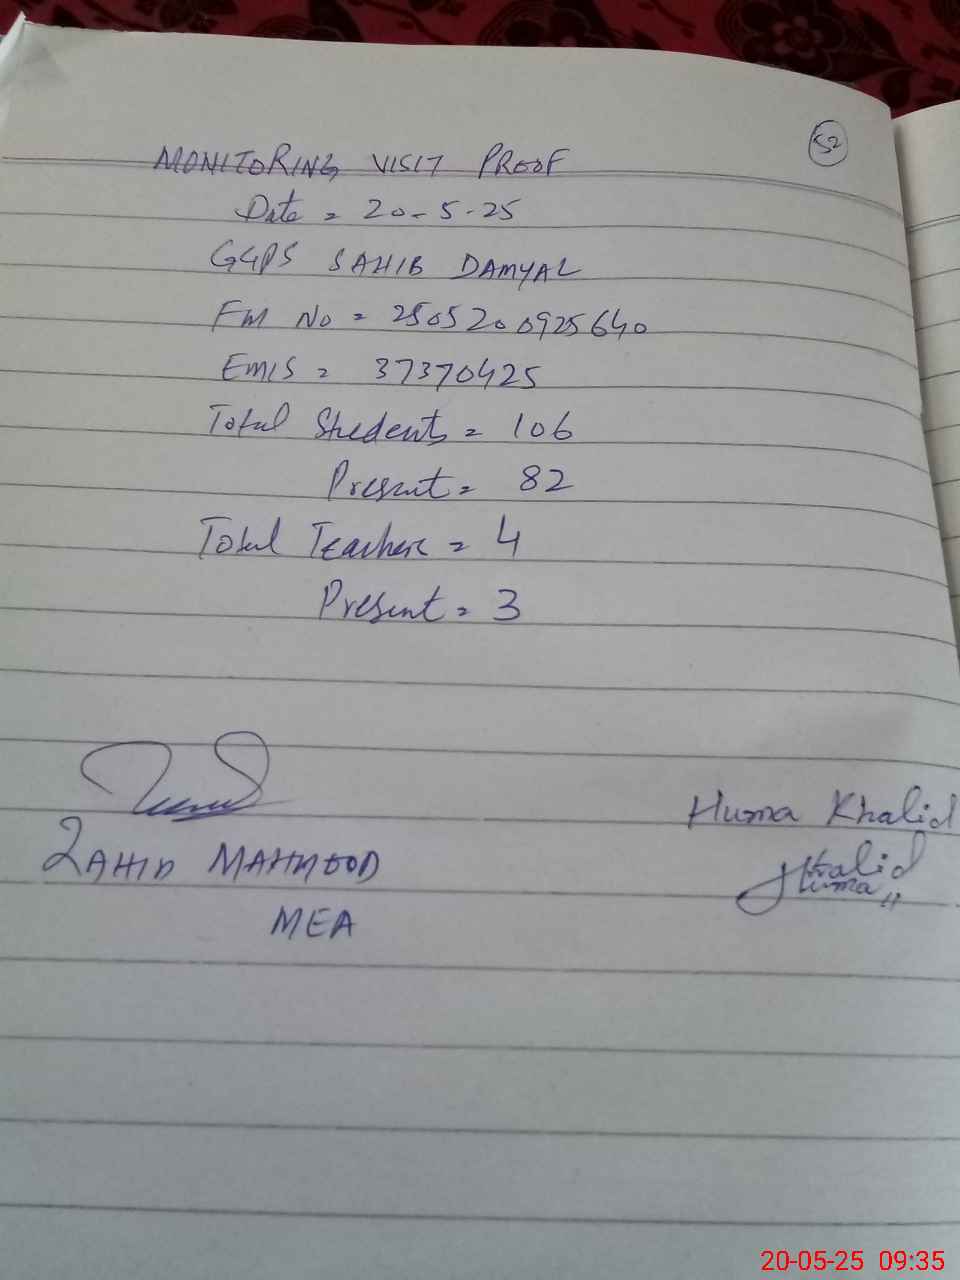 52
MONITORING VISIT PROOF
Date = 20-5-25
GGPS SAHIB DAMYAL
FM No = 2505200925640
EMIS = 37370425
Total Students = 106
Present = 82
Total Teacher = 4
Present = 3
Huma Khalid
ZAHID MAHMOOD
Khalid
Huma
MEA
20-05-25 09:35